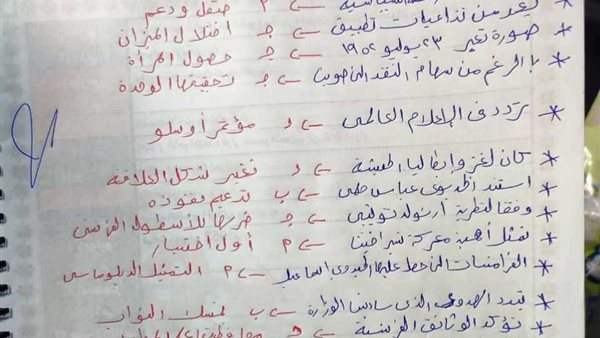 يعد من تداعيات تطبيق ← جـ اختلال الميزان
صورة تغير ٢٣ يوليو ١٩٥٢ ← جـ حصول المرأة
بالرغم من سهام النقد التى صوبت ← جـ تحقيقها الوحدة
* تردد فى الإعلام العالمى ← د مؤتمر أوسلو
* كان لغزو إيطاليا الحبشة ← د تغير شكل العلاقة
* استند الخديوى عباس حلمى ← ب تدعيم نفوذه
* وفقا لنظرية أرنولد توينبى ← جـ ضربها للأسطول الفرنسى
* تمثل أهمية معركة شبراخيت ← م أول اختبار
* الفرامانات التى حصل عليها الخديوى إسماعيل ← م التمثيل الدبلوماسى
* الذى سادت بين الوزارة ← ب تمسك النواب
* تؤكد الوثائق الفرنسية